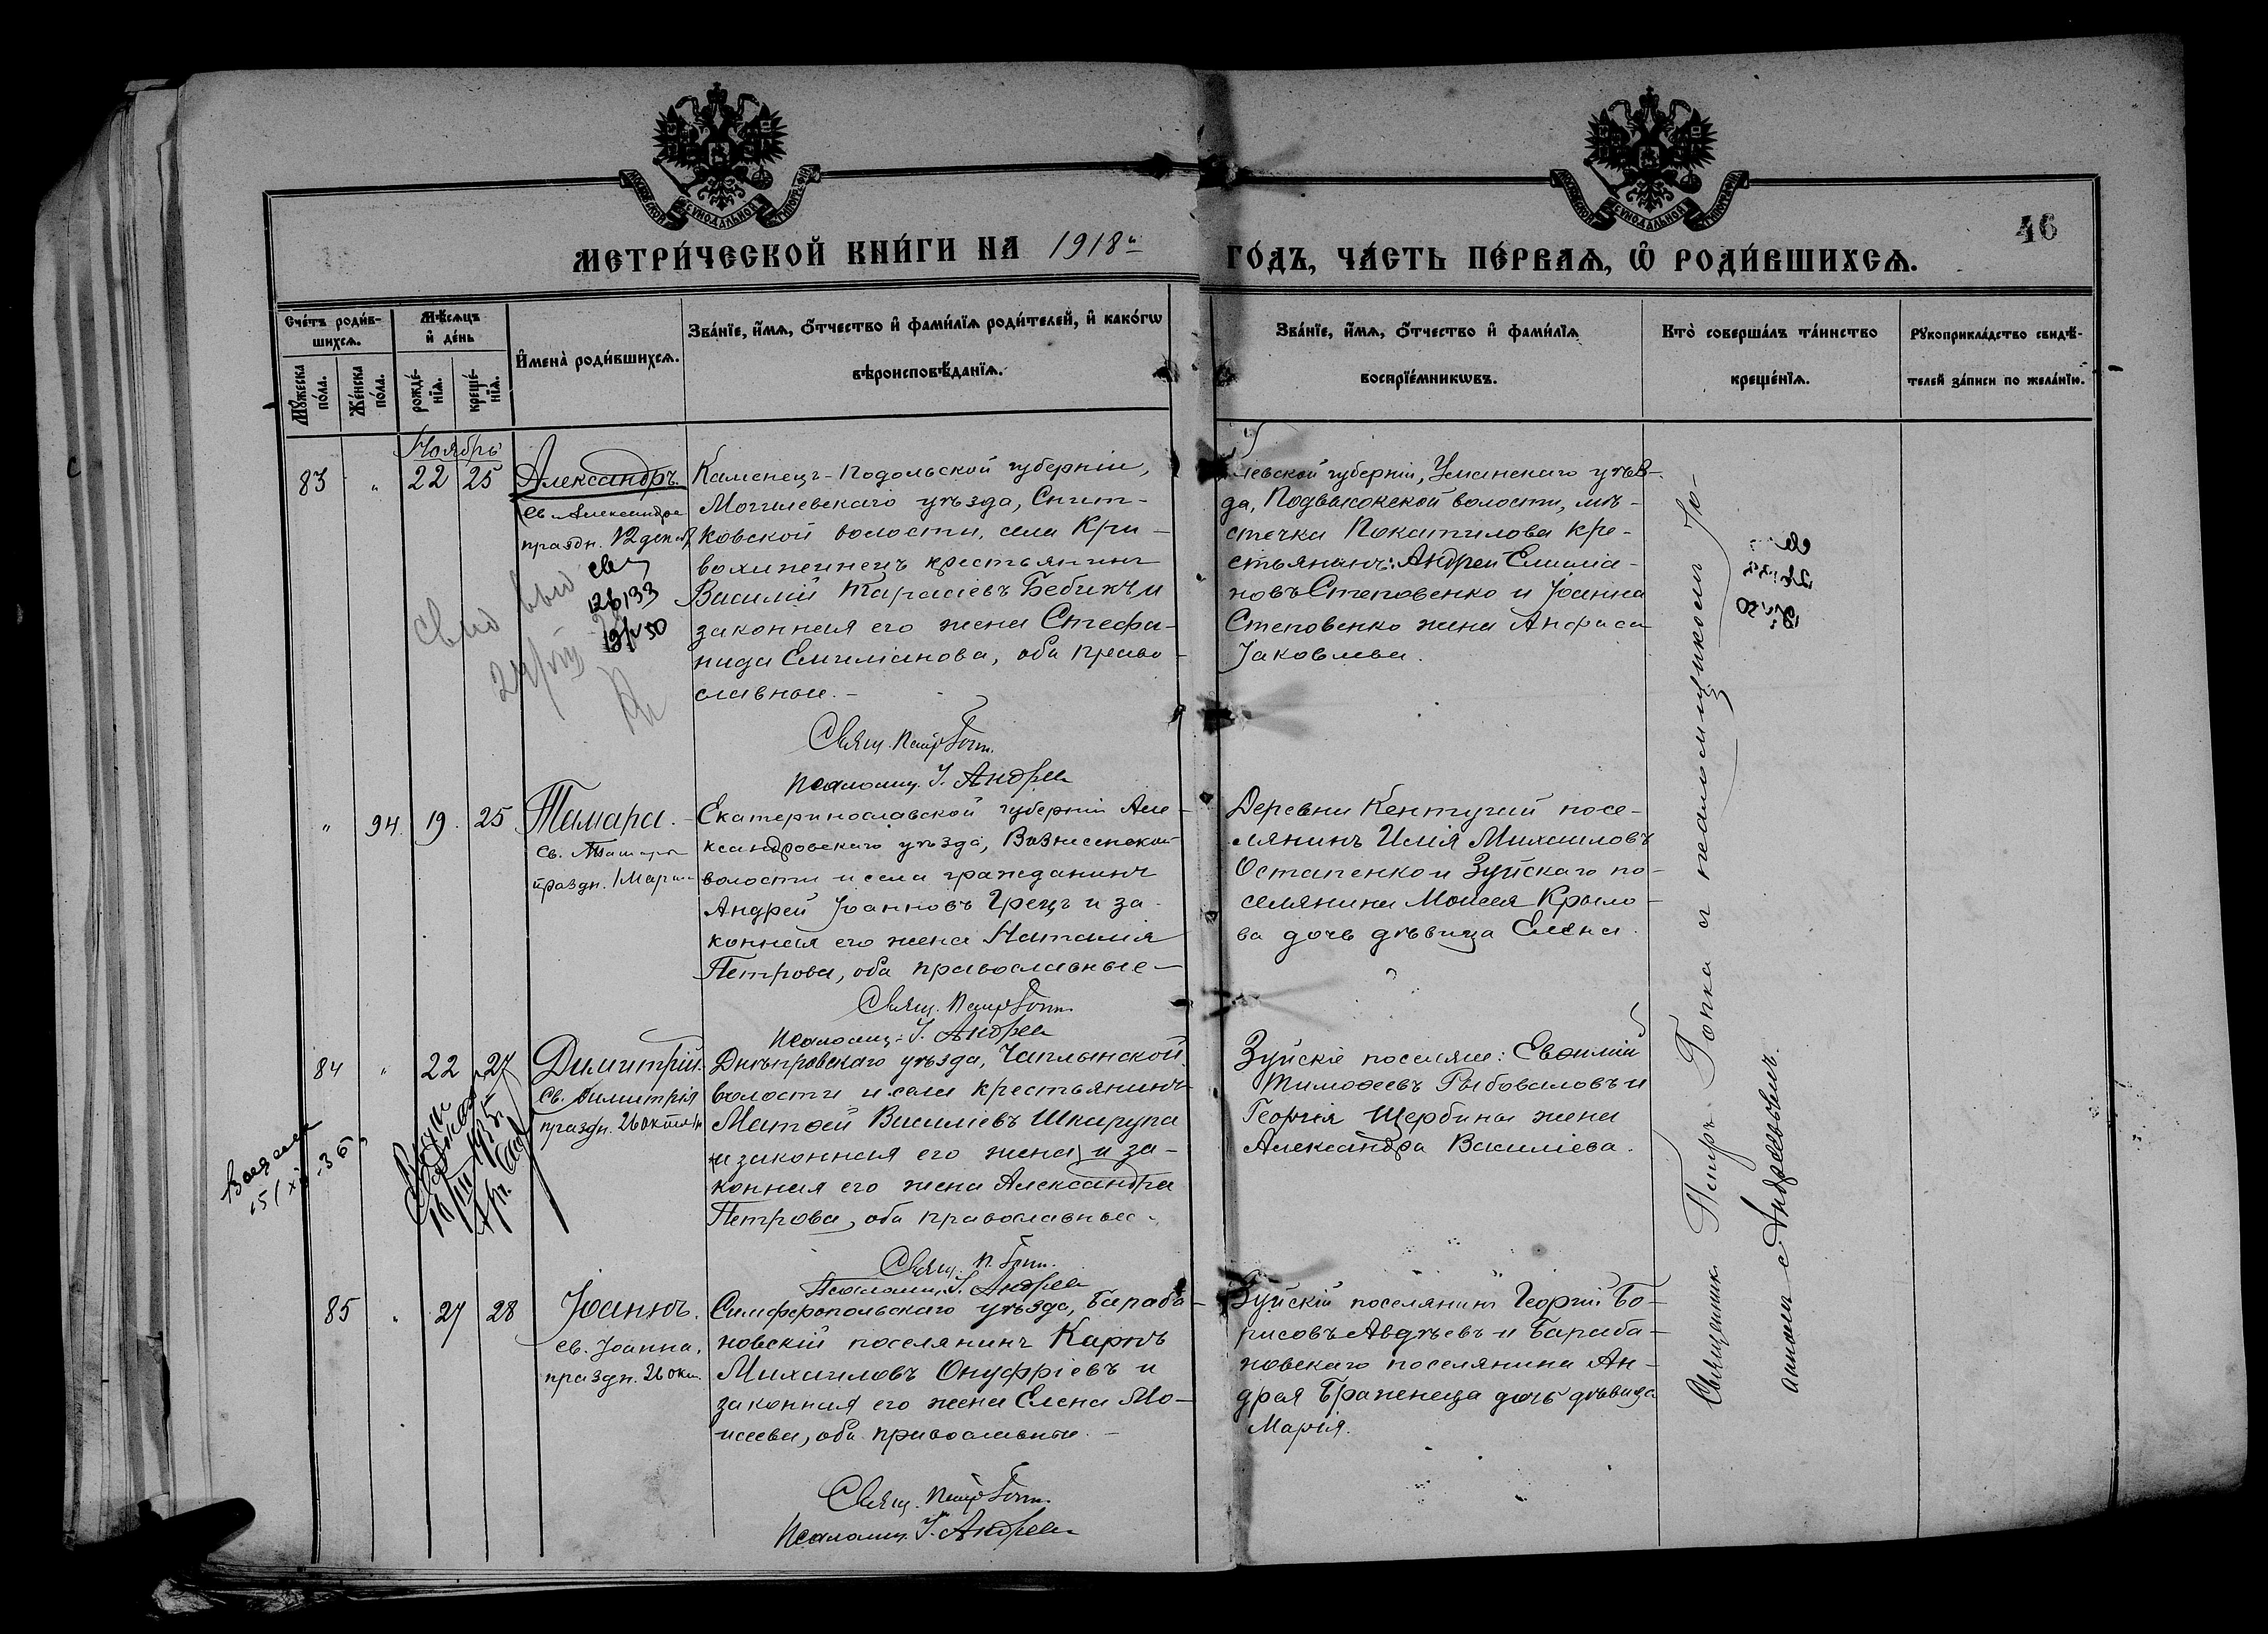 МОСКОВСКОЙ СѴНОДАЛЬНОЙ ТИПОГРАФІИ
МОСКОВСКОЙ СѴНОДАЛЬНОЙ ТИПОГРАФІИ
46
МЕТРИ́ЧЕСКОЙ КНИ́ГИ НА 1918й
ГО́ДЪ, ЧА́СТЬ ПЕ́РВАѦ, Ѡ҆ РОДИ́ВШИХСѦ.
Сче́тъ роди́в-
шихсѧ.
Мꙋ́жеска по́ла.
Же́нска по́ла.
Мѣ́сѧцъ
и҆ де́нь
рожде́-
нїѧ.
креще́-
нїѧ.
И҆мена̀ роди́вшихсѧ.
Зва́нїе, и҆́мѧ, ѻ҆́тчество и҆ фами́лїѧ роди́телей, и҆ како́гѡ
вѣроисповѣ́данїѧ.
Зва́нїе, и҆́мѧ, ѻ҆́тчество и҆ фами́лїѧ
воспрїе́мникѡвъ.
Кто̀ соверша́лъ та́инство
креще́нїѧ.
Рꙋкоприкла́дство свидѣ́-
телей за́писи по жела́нїю.
Ноябрь
83 " 22 25 Александръ
св. Александра
праздн. 12 дек.
126133
19/V 50
Каменецъ-Подольской губерніи,
Могилевскаго уѣзда, Снит-
ковской волости, села Кри-
вохиженнецъ крестьянинъ
Василій Тарасіевъ Бебихъ и
законная его жена Стефа-
нида Емиліанова, оба право-
славные.-
Свящ. Петръ Гопк.
Псаломщ. І. Андрее
іевской губерніи, Уманскаго уѣз-
да, Подвысокской волости, мѣ-
стечка Покатилова кре-
стьянинъ: Андрей Емиліа-
новъ Степовенко и Іоанна
Степовенко жена Анфиса
Іаковлева.
" 94. 19. 25 Тамара.
св. Тамары
праздн. 1 Мар
Екатеринославской губерніи Але-
ксандровскаго уѣзда, Вознесенской
волости и села гражданинъ
Андрей Іоанновъ Грецъ и за-
конная его жена Наталія
Петрова, оба православные-
Свящ. Петръ Гопк.
Псаломщ. І. Андрее
Деревни Кентугай посе-
лянинъ Илія Михаиловъ
Остапенко и Зуйскаго по-
селянина Моисея Крыло-
ва дочь дѣвица Елена.
84 " 22 27 Димитрій.
св. Димитрія
праздн. 26 октяб
Днѣпровскаго уѣзда, Чаплынской
волости и села крестьянинъ
Матѳей Василіевъ Шкарупа
(и законная его жена) и за-
конная его жена Александра
Петрова, оба православные.
Свящ. П. Гопк.
Псаломщ. І. Андрее
Зуйскіе поселяне: Евѳимій
Тимоѳеевъ Рыбоваловъ и
Георгія Щербины жена
Александра Василіева.
85 " 27 28 Іоаннъ.
св. Іоанна,
праздн. 26 окт.
Симферопольскаго уѣзда, Бараба-
новскій поселянинъ Карпъ
Михаиловъ Онуфріевъ и
законная его жена Елена Мо-
исеева, оба православные.-
Свящ. Петръ Гопк.
Псаломщ. І. Андрее
Зуйскій поселянинъ Георгій Бо-
рисовъ Авдѣевъ и Бараба-
новскаго поселянина Ан-
дрея Браженеца дочь дѣвица
Марія.
Священникъ Петръ Гопка и псаломщикомъ Іо-
анномъ Андреевичемъ.